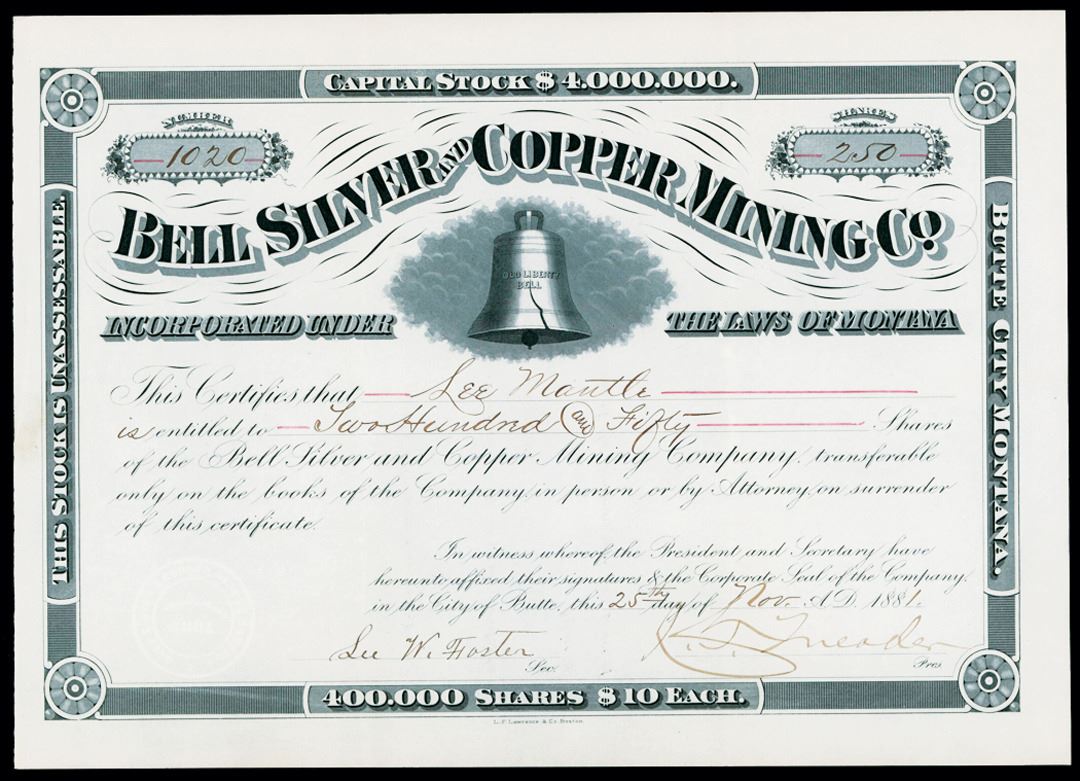 CAPITAL STOCK $4.000.000.
NUMBER
1020
SHARES
250
BELL SILVER AND COPPER MINING CO.
OLD LIBERTY
BELL
INCORPORATED UNDER THE LAWS OF MONTANA
THIS STOCK IS UNASSESSABLE.
BUTTE CITY MONTANA.
This Certifies that Lee Mantle
is entitled to Two Hundred and Fifty Shares
of the Bell Silver and Copper Mining Company, transferable
only on the books of the Company, in person or by Attorney, on surrender
of this certificate.
In witness whereof, the President and Secretary have
hereunto affixed their signatures & the Corporate Seal of the Company,
in the City of Butte, this 25th day of Nov. A.D. 1881.
Lee W. Foster Sec.
Pres.
400.000 SHARES $10 EACH.
L. F. Lawrence & Co. Boston.